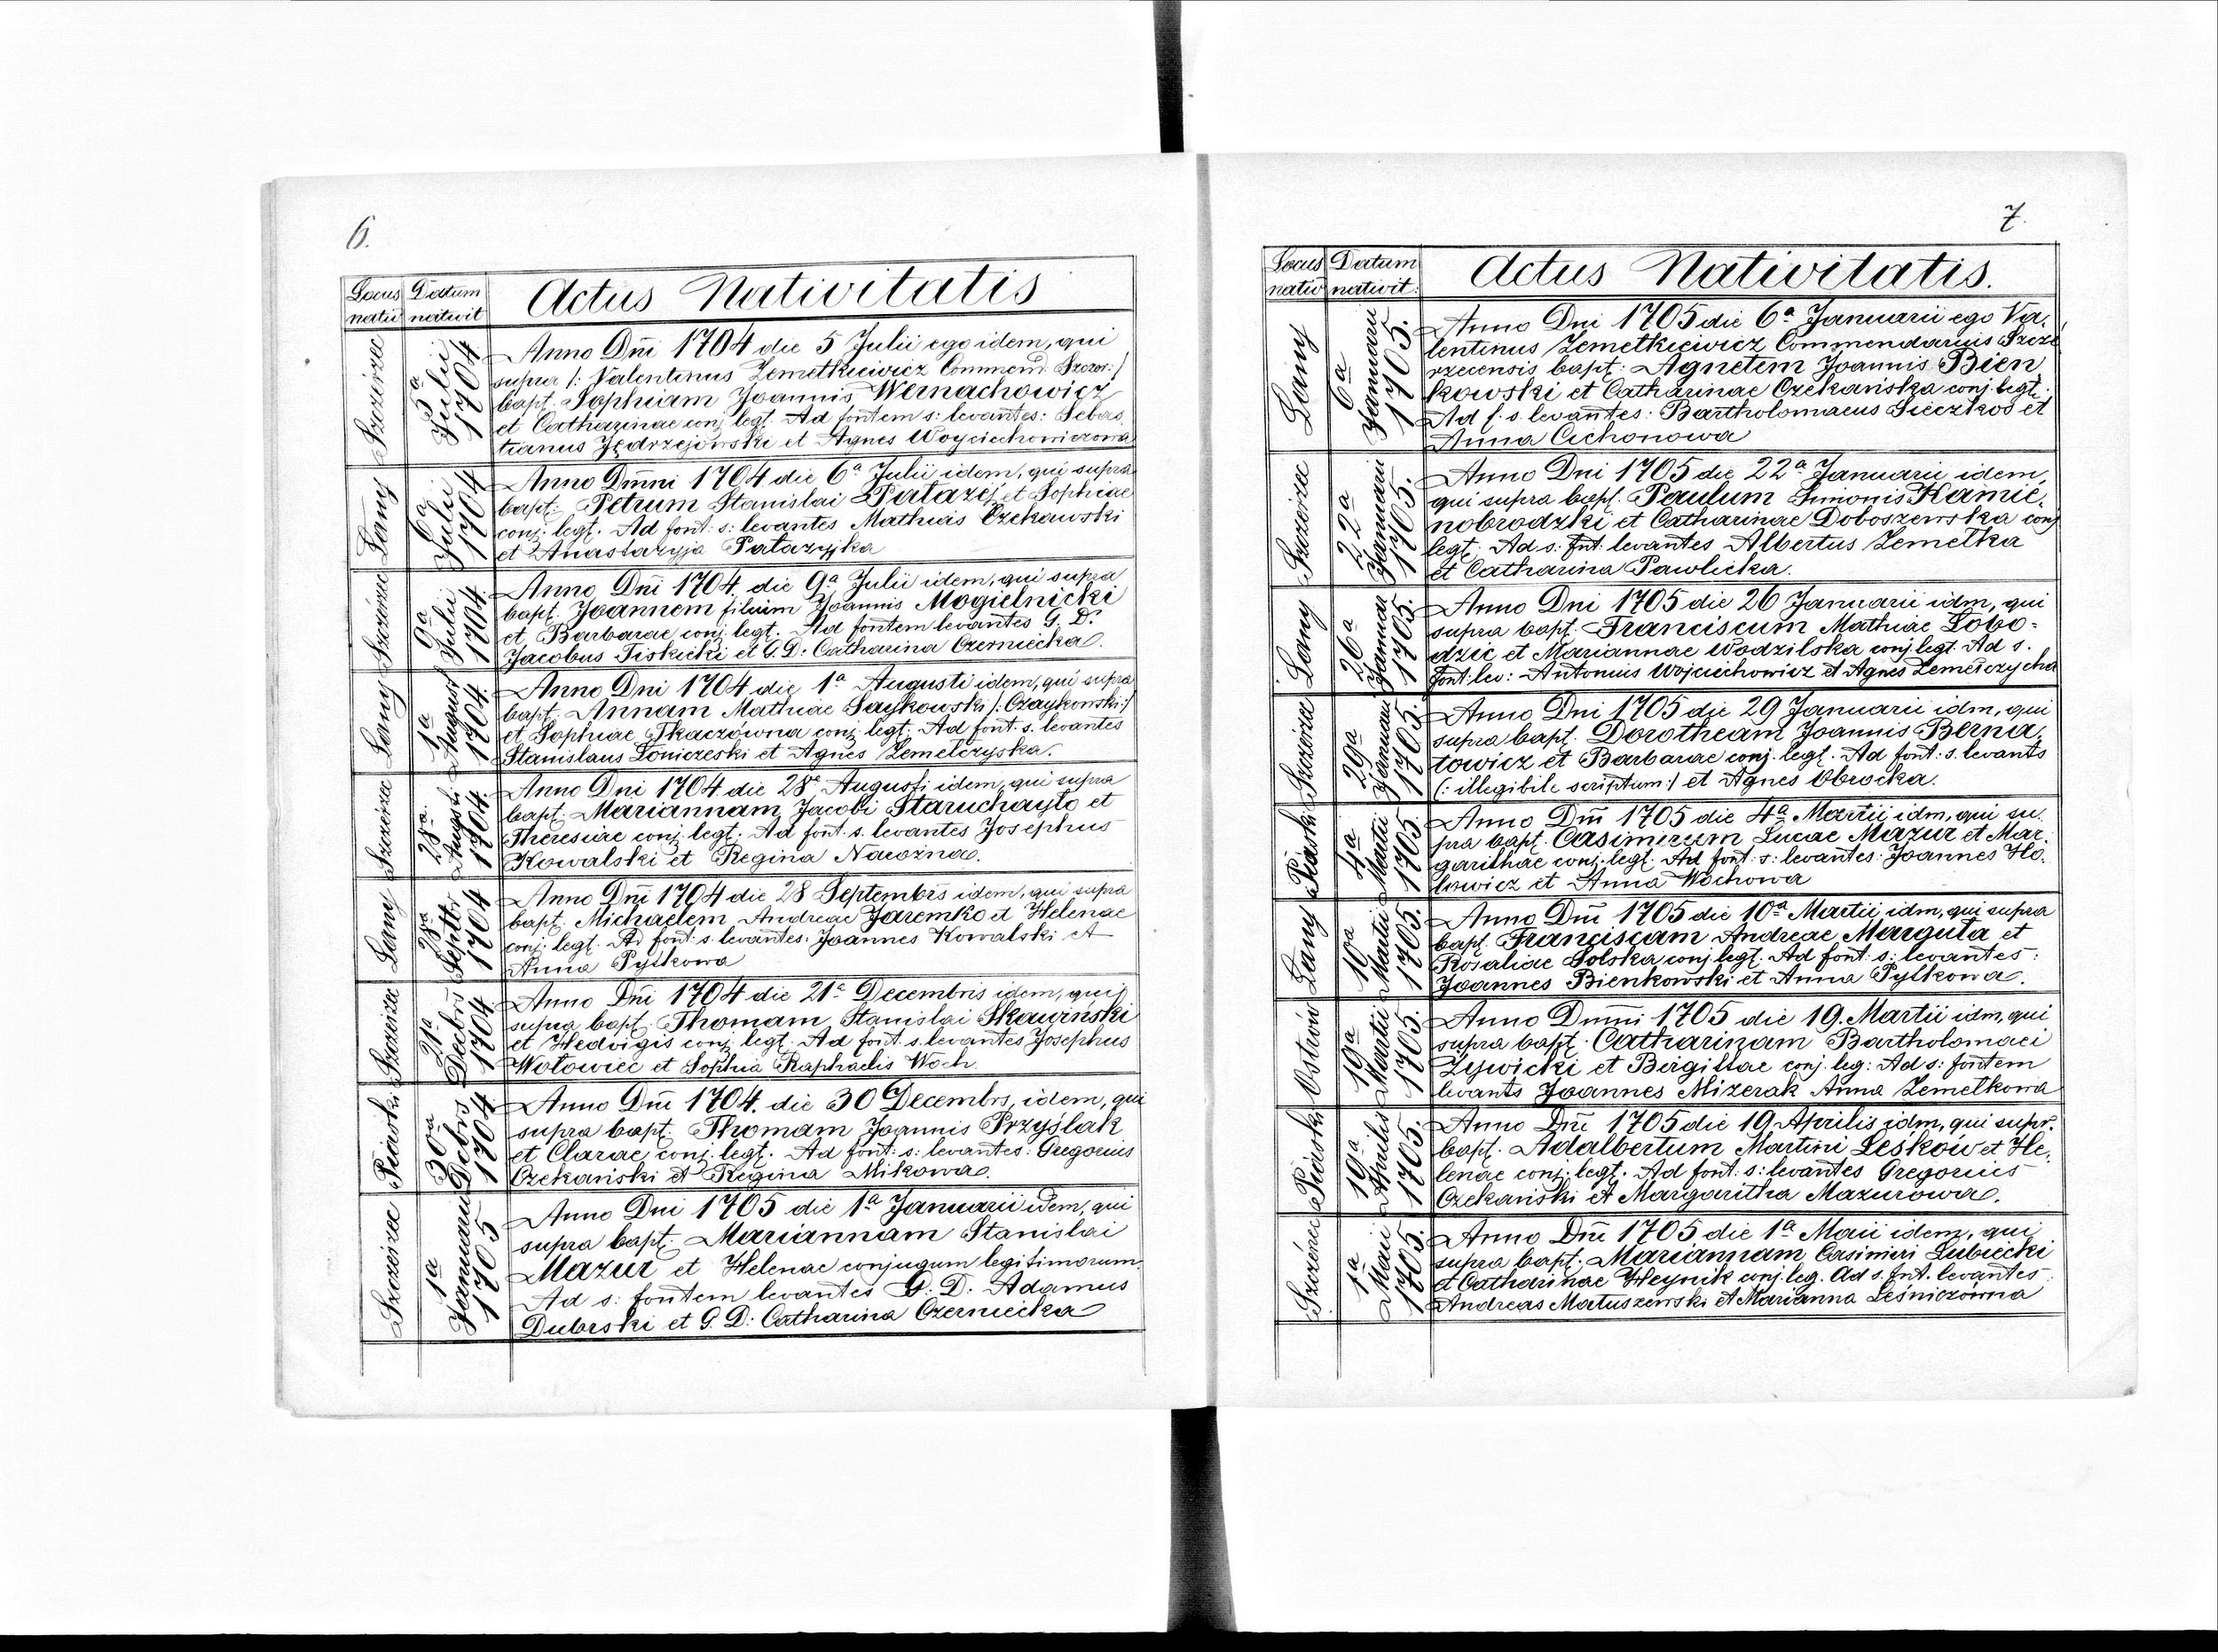 6.
Locus nativ
Datum nativit
Actus Nativitatis
Szczérzec
5a Julii 1704
Anno Dni 1704 die 5 Julii ego idem, qui
supra /: Valentinus Zemetkiewicz Commend: Szczer:/
bapt. Sophiam Joannis Wernachowicz
et Catharinae conj. legt. Ad fontem s: levantes: Sebas
tianus Jędrzejowski et Agnes Woyciechowiczowa
Lany
6a Julii 1704
Anno Dmni 1704 die 6a Julii idem, qui supra
bapt: Petrum Stanislai Patazéj et Sophiae
conj. legt. Ad font: s: levantes Mathias Czekawski
et Anastazyja Patazyjka
Szczérzec
9a Julii 1704
Anno Dni 1704. die 9a Julii idem, qui supra
bapt. Joannem filium Joannis Mogielnicki
et Barbarae conj. legt. Ad fontem levantes G. D.
Jacobus Tiskicki et G. D. Catharina Czerniecka.
Lany
1a August 1704.
Anno Dni 1704 die 1a Augusti idem, qui supra
bapt. Annam Mathiae Saykowski /: Czaykowski:/
et Sophiae Tkaczówna conj. legt. Ad font. s. levantes
Stanislaus Loniczeski et Agnes Zemelczyska.
Szczérzec
28a Augsti 1704.
Anno Dni 1704 die 28a Augusti idem, qui supra
bapt. Mariannam Jacobi Staruchayło et
Theresiae conj. legt. Ad font. s. levantes Josephus
Kowalski et Regina Nawozna.
Lany
28a Septbr 1704
Anno Dni 1704 die 28 Septembris idem, qui supra
bapt. Michaelem Andreae Jaremko et Helenae
conj. legt. Ad font: s. levantes: Joannes Kowalski et
Anna Pytkowa
Szczérzec
21a Decbris 1704
Anno Dni 1704 die 21a Decembris idem, qui
supra bapt. Thomam Stanislai Skawiński
et Hedvigis conj. legt. Ad font. s. levantes Josephus
Wołowiec et Sophia Raphaelis Woch.
Piaski
30a Dcbrs 1704
Anno Dni 1704. die 30 Decembrs, idem, qui
supra bapt. Thomam Joannis Przyślak
et Clarae conj. legt. Ad font: s: levantes: Gregorius
Czekański et Regina Mikowa.
Szczérzec
1a Januarii 1705
Anno Dni 1705 die 1a Januarii idem, qui
supra bapt. Mariannam Stanislai
Mazur et Helenae conjugum legitimorum.
Ad s: fontem levantes G. D. Adamus
Dubrski et G. D. Catharina Czerniecka
7.
Locus nativ
Datum nativit:
Actus Nativitatis.
Lainy
6a Januarii 1705.
Anno Dni 1705 die 6a Januarii ego Va,
lentinus Zemetkiewicz Commendarius Szczé
rzecensis bapt. Agnetem Joannis Bien
kowski et Catharinae Czekańska conj. legt.
Ad f. s. levantes: Bartholomaeus Sieczkos et
Anna Cichonowa
Szczerzec
22a Januarii 1705.
Anno Dni 1705 die 22a Januarii idem,
qui supra bapt. Paulum Simonis Kamie,
nobrodzki et Catharinae Doboszewska conj
legt. Ad s: fnt: levantes Albertus Zemełka
et Catharina Pawlicka.
Lany
26a Januar 1705.
Anno Dni 1705 die 26 Januarii idm, qui
supra bapt. Franciscum Mathiae Lobo=
dzic et Mariannae Wodzilska conj. legt. Ad s.
font: lev: Antonius Wojciechowicz et Agnes Zemełczycha
Szczerza
29a Januari 1705.
Anno Dni 1705 die 29 Januarii idm, qui
supra bapt. Dorotheam Joannis Berna,
towicz et Barbarae conj. legt. Ad font: s. levants
(: illegibile scriptum:) et Agnes Obrocka.
Piaski
4a Martii 1705
Anno Dni 1705 die 4a Martii idm, qui su,
pra bapt. Casimirum Lucae Mazur et Mar,
garithae conj. legt. Ad font: s: levantes: Joannes Ho,
łowicz et Anna Wochowa
Lany
10a Martii 1705.
Anno Dni 1705 die 10a Martii idm, qui supra
bapt. Franciscam Andreae Marguta et
Rosaliae Solska conj. legt. Ad font: s: levantes:
Joannes Bienkowski et Anna Pytkowa.
Ostrów
19a Martii 1705.
Anno Dmni 1705 die 19. Martii idm, qui
supra bapt. Catharinam Bartholomaei
Żywicki et Birgittae conj. leg: Ad s: fontem
levants Joannes Mizerak Anna Zemelkowa
Piaski
19a Aprilis 1705.
Anno Dni 1705 die 19 Aprilis idm, qui supr.
bapt. Adalbertum Martini Leśków et He,
lenae conj. legt. Ad font. s: levantes Gregorius
Czekański et Margaritha Mazurowa.
Szczérzec
1a Maii 1705.
Anno Dni 1705 die 1a Maii idem, qui
supra bapt. Mariannam Casimiri Lubiecki
et Catharinae Heynik conj. leg. Ad s. fnt. levantes
Andreas Matuszewski et Marianna Leśniczówna